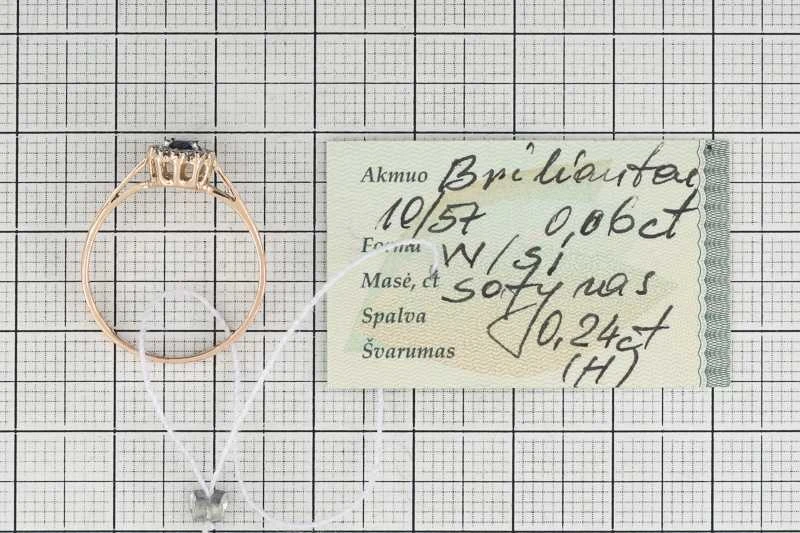 Akmuo Briliantai
10/57 0,06ct
Forma W/si
Masė, ct Safyras
Spalva 0,24ct
Švarumas (H)